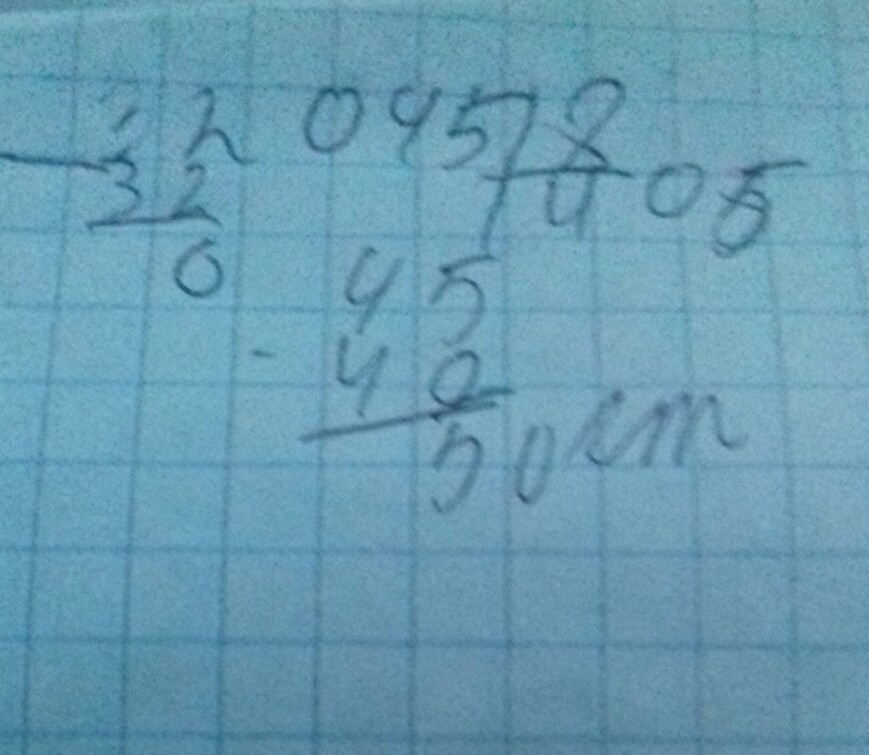 32 045 8
32 405
0 45
- 40
50cm